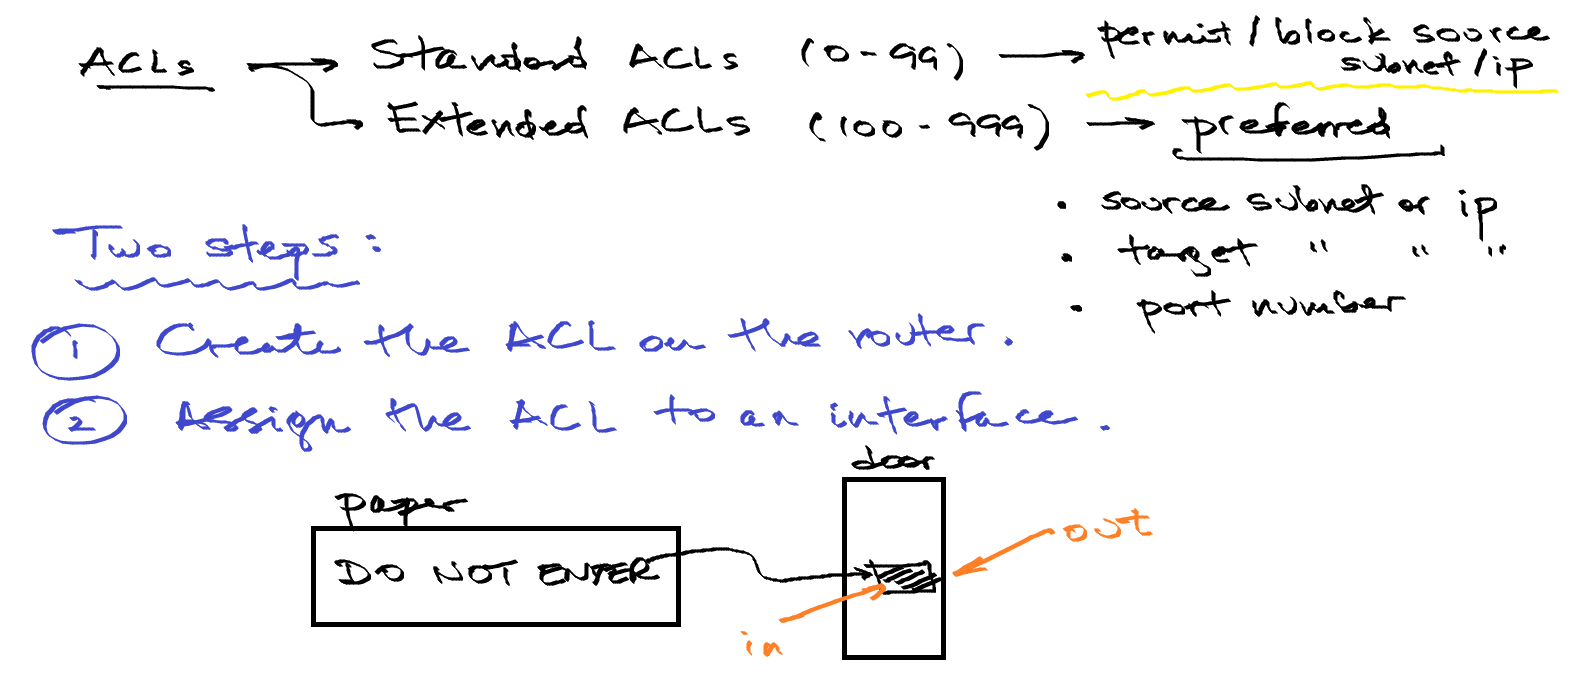 ACLs → Standard ACLs (0-99) → permit / block source
subnet / ip
Extended ACLs (100-999) → preferred
• source subnet or ip
Two steps:
• target " " "
• port number
① Create the ACL on the router.
② Assign the ACL to an interface.
door
paper
out
DO NOT ENTER
in